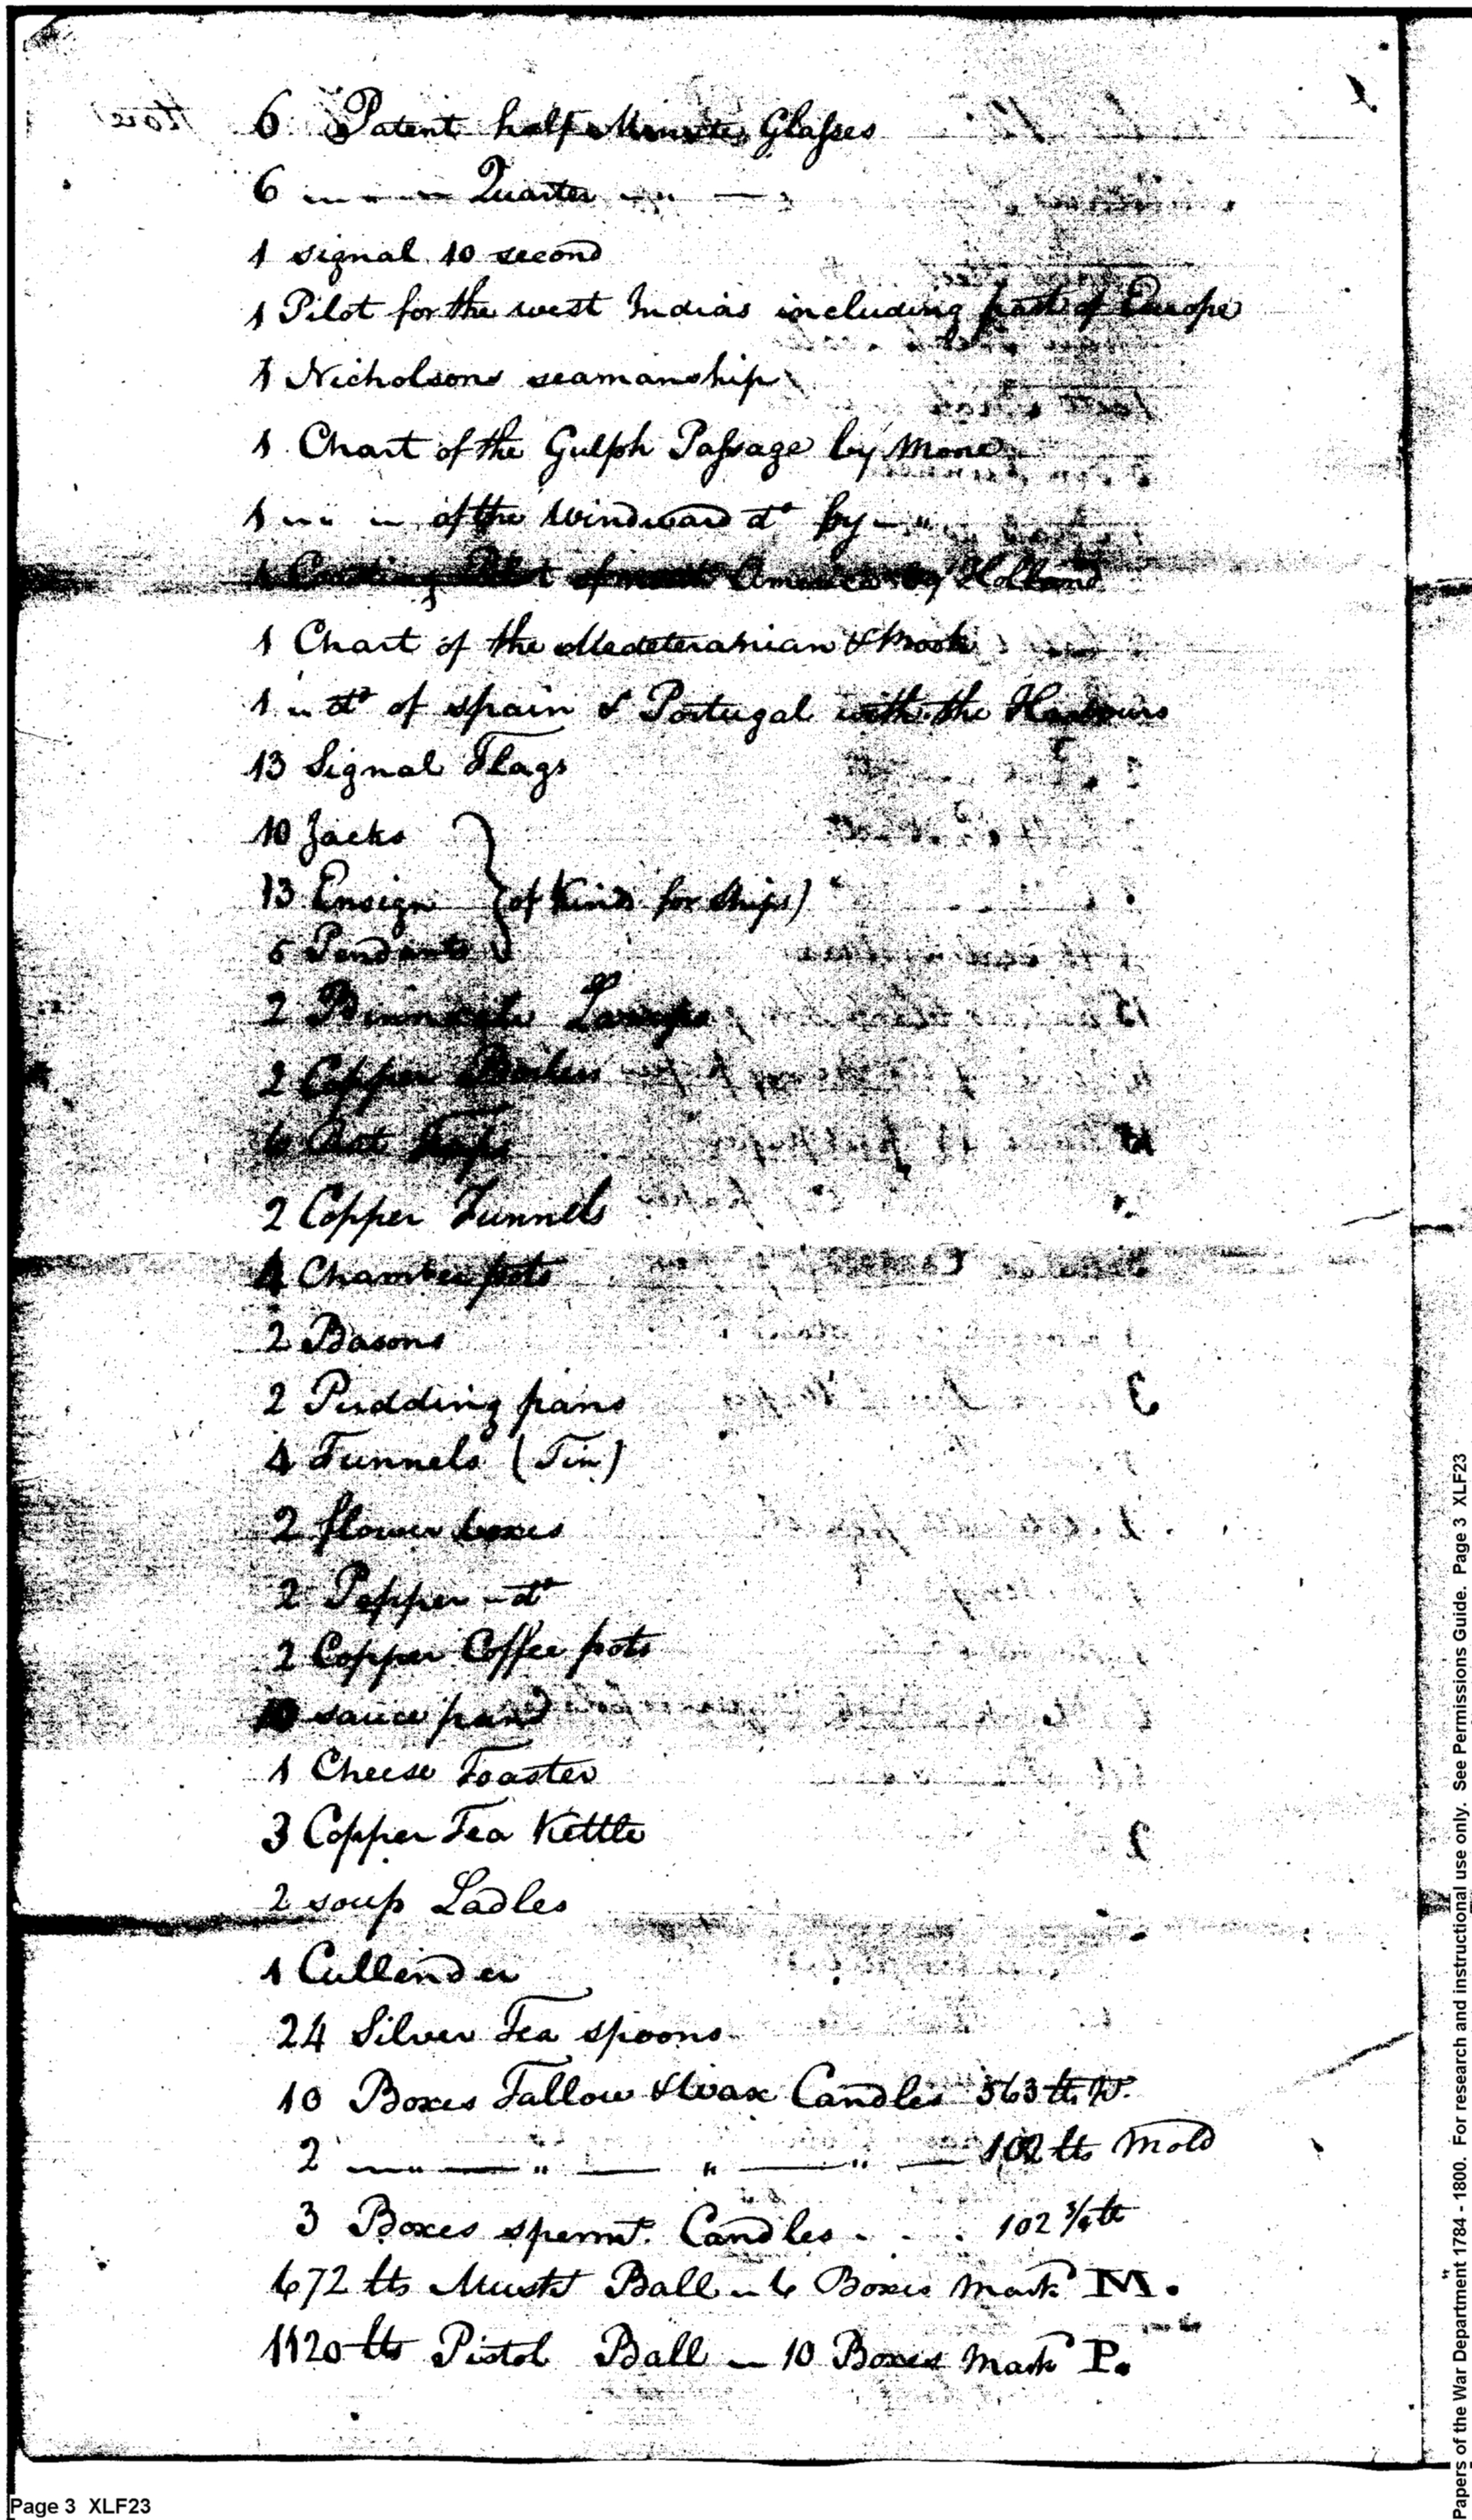 6 Patent half Minute Glasses
6 " " " Quarter " "
1 signal 10 second
1 Pilot for the west Indias including part of Europe
1 Nicholsons seamanship
1 Chart of the Gulph Passage by Mone
1 " " of the Windward do by "
1 Coasting Pilot of North America by Holland
1 Chart of the Medeteranian & Book
1 " do of spain & Portugal with the Harbours
13 Signal Flags
10 Jacks
13 Ensign (of kinds for ships)
5 Pendants
2 Binnacle Lamps
2 Copper Boilers
6
2 Copper Funnels
4 Chamber pots
2 Basons
2 Pudding pans
4 Funnels (Tin)
2 flower boxes
2 Pepper - do
2 Copper Coffee pots
10 sauce pans
1 Cheese Toaster
3 Copper Tea Kettle
2 soup Ladles
1 Cullender
24 Silver Tea spoons
10 Boxes Tallow & Wax Candles 563 lb W.
2 " " " " 102 lbs Mold
3 Boxes spermt. Candles . . . 102 3/4 lb
672 lbs Muskt Ball in 6 Boxes Mark M.
1120 lbs Pistol Ball in 10 Boxes Mark P.
Page 3 XLF23
Papers of the War Department 1784 - 1800. For research and instructional use only. See Permissions Guide. Page 3 XLF23